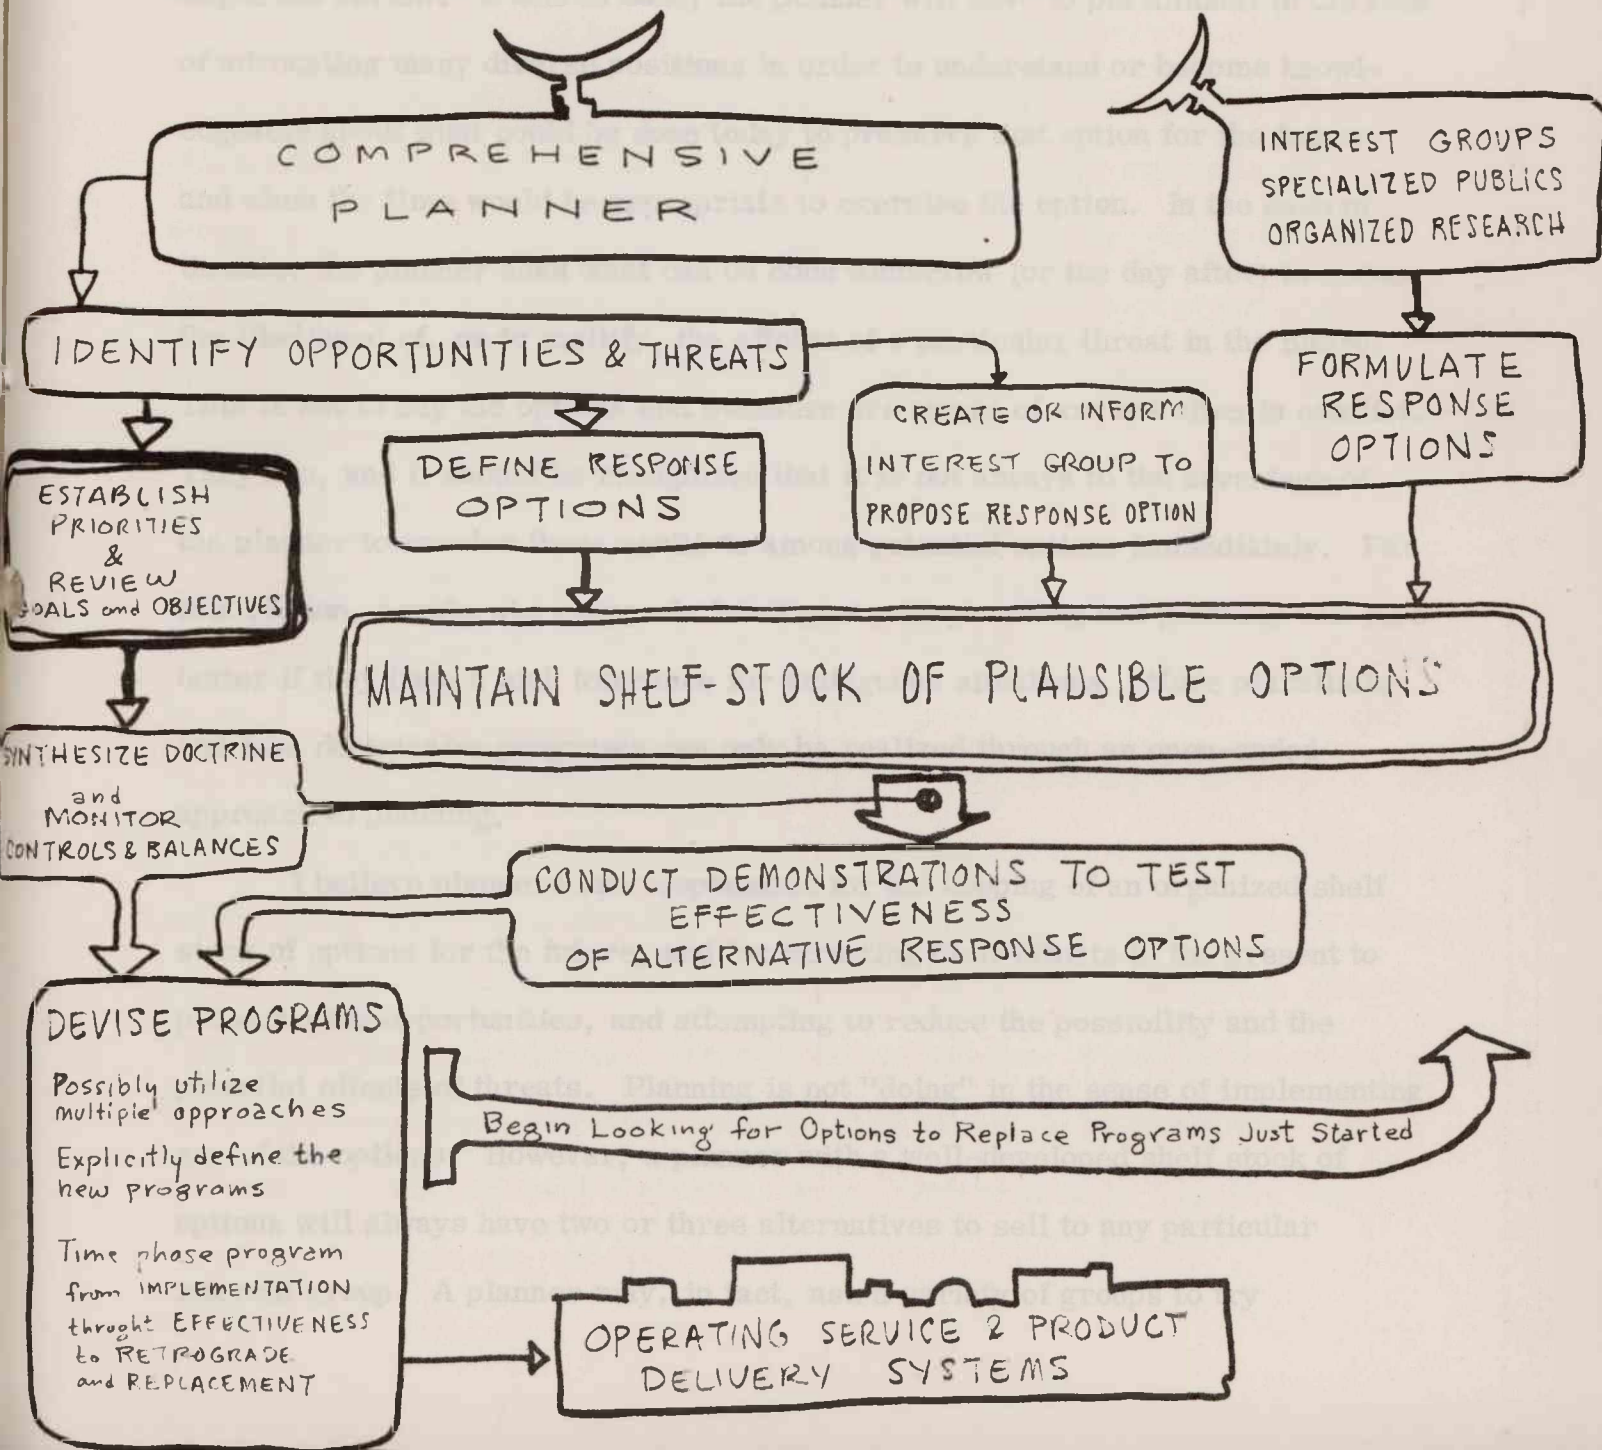 COMPREHENSIVE
PLANNER
INTEREST GROUPS
SPECIALIZED PUBLICS
ORGANIZED RESEARCH
IDENTIFY OPPORTUNITIES & THREATS
FORMULATE
RESPONSE
OPTIONS
CREATE OR INFORM
INTEREST GROUP TO
PROPOSE RESPONSE OPTION
DEFINE RESPONSE
OPTIONS
ESTABLISH
PRIORITIES
&
REVIEW
GOALS and OBJECTIVES
MAINTAIN SHELF-STOCK OF PLAUSIBLE OPTIONS
SYNTHESIZE DOCTRINE
and
MONITOR
CONTROLS & BALANCES
CONDUCT DEMONSTRATIONS TO TEST
EFFECTIVENESS
OF ALTERNATIVE RESPONSE OPTIONS
DEVISE PROGRAMS
Possibly utilize
multiple approaches
Explicitly define the
new programs
Time phase program
from IMPLEMENTATION
throught EFFECTIVENESS
to RETROGRADE
and REPLACEMENT
Begin Looking for Options to Replace Programs Just Started
OPERATING SERVICE & PRODUCT
DELIVERY SYSTEMS